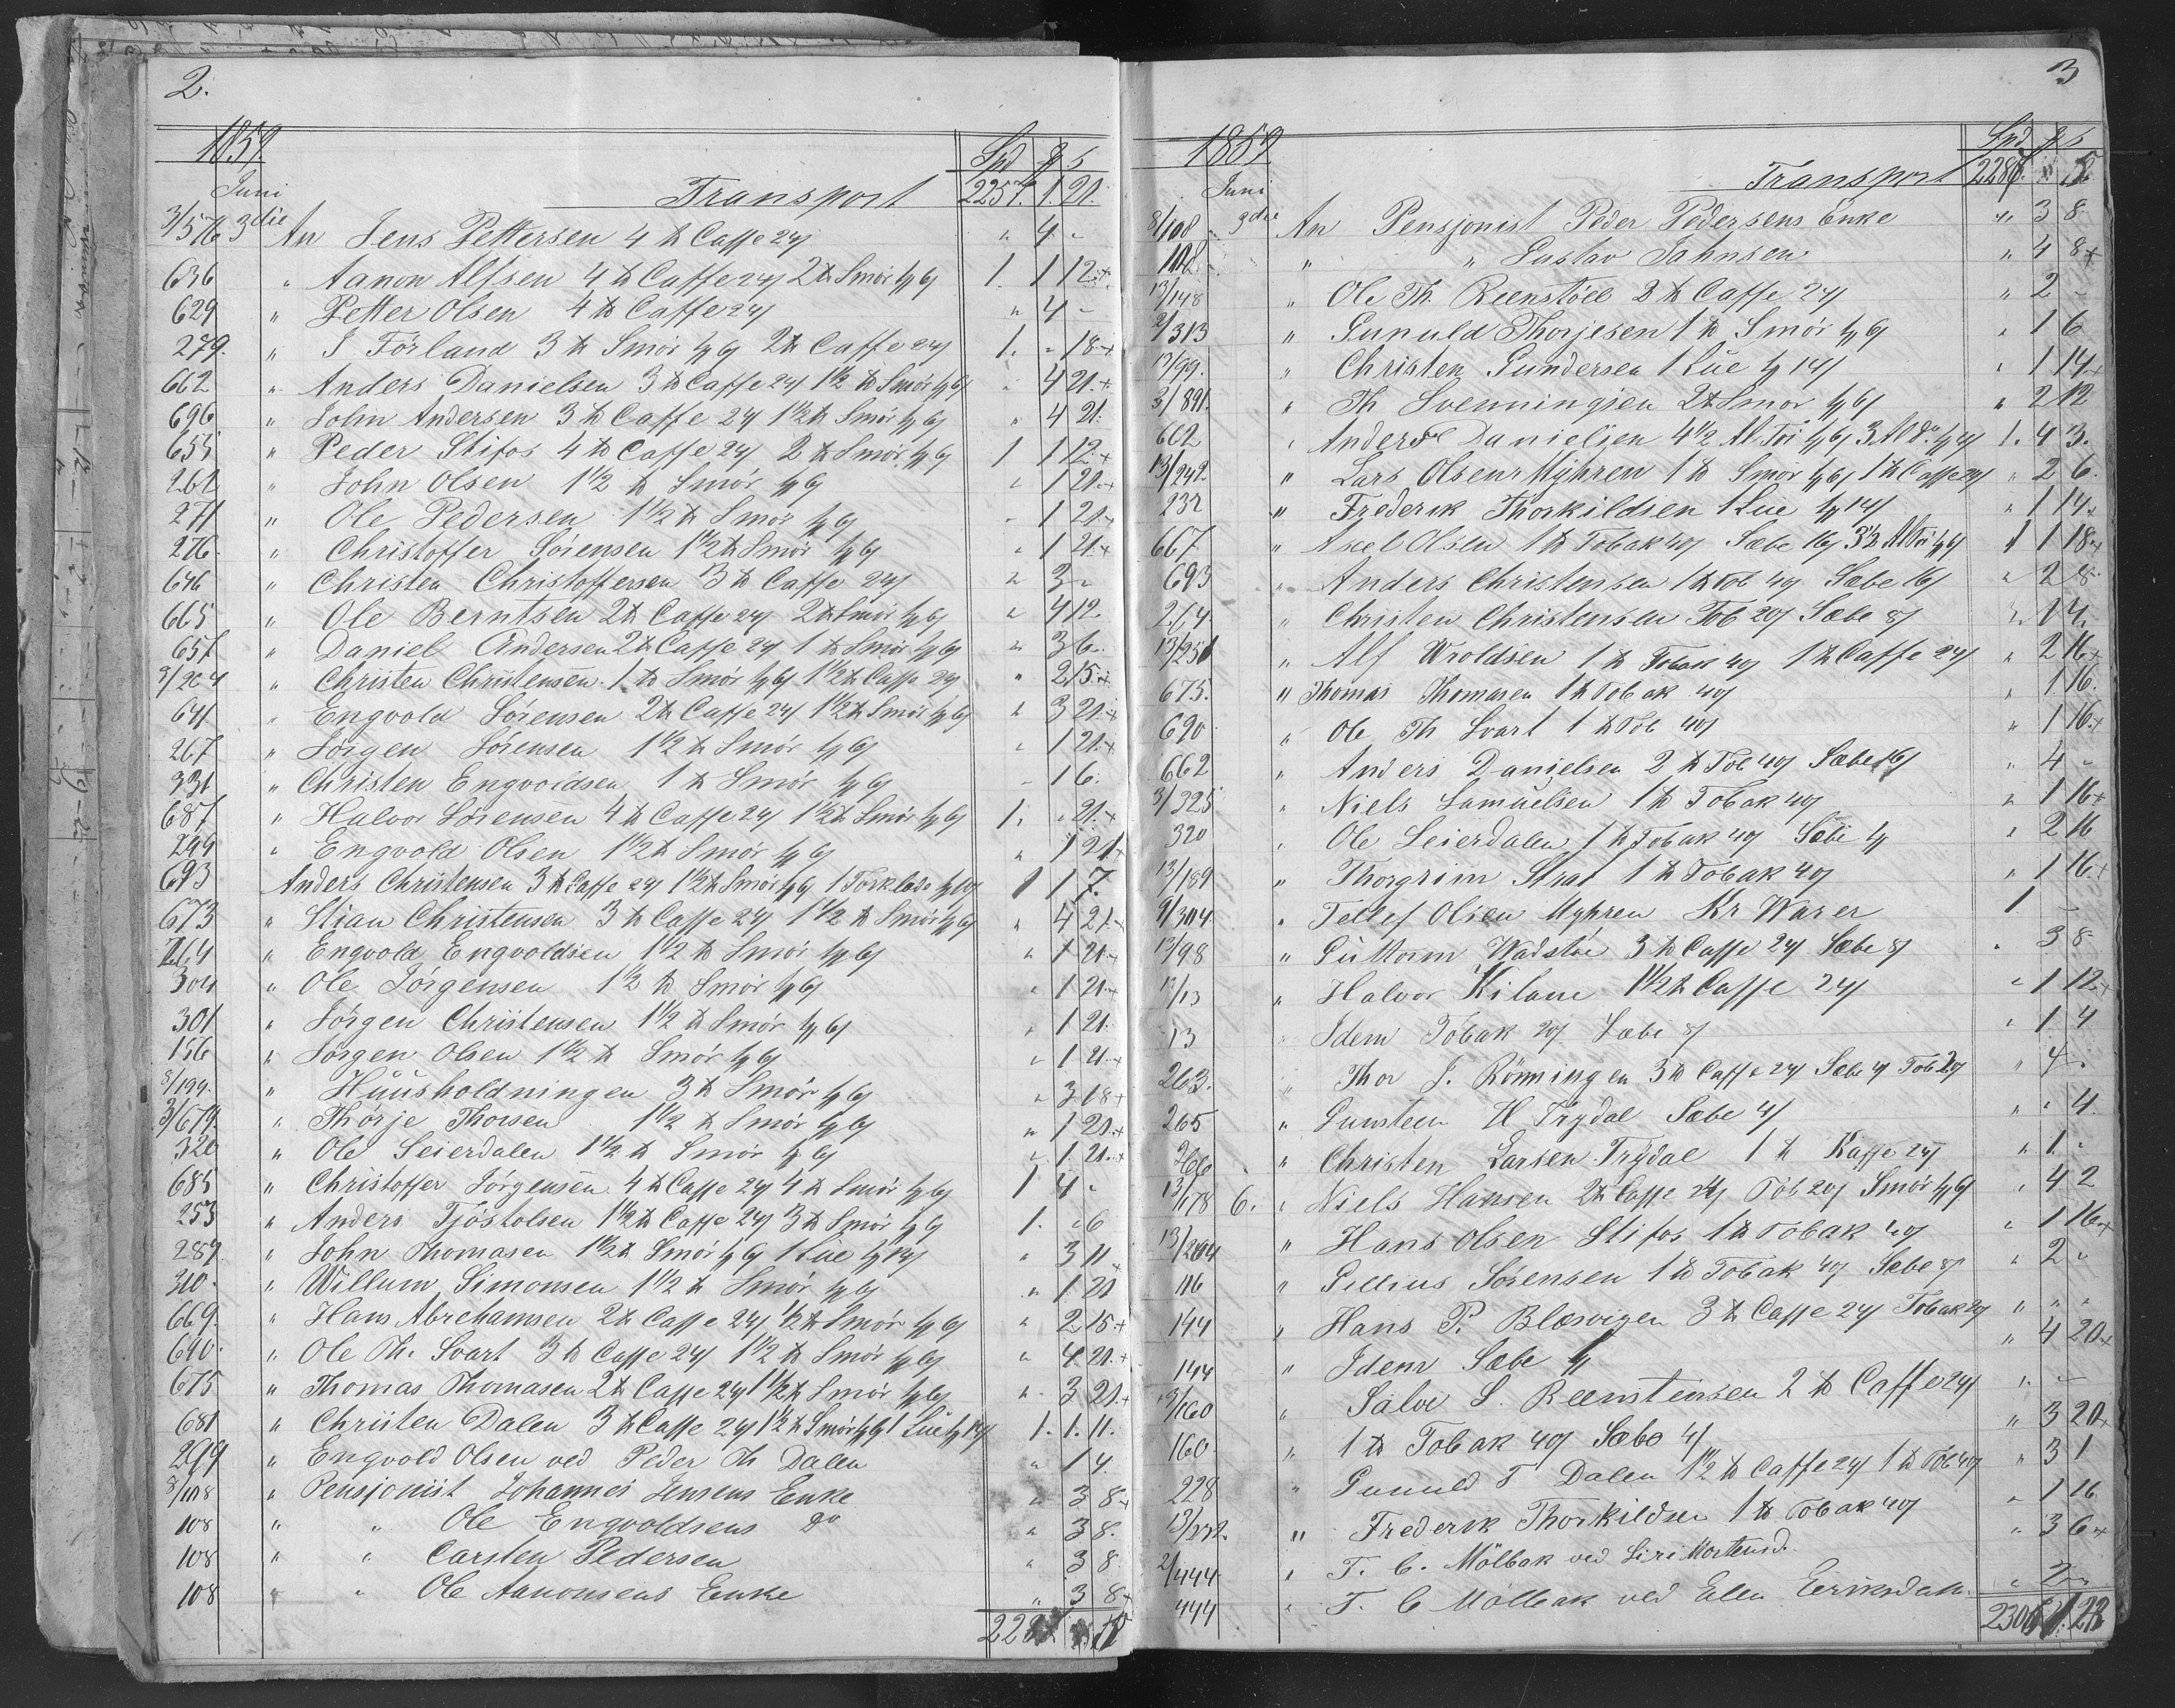 2.
1859.
Spd ß
Juni
Transport 2257. 1. 21.
3/576 3die An Jens Pettersen 4 ℔ Caffe 24/ " 4 -
636 " Aanon Alfsen 4 ℔ Caffe 24/ 2 ℔ Smör 1/6/ 1. 1 12.+
629 " Petter Olsen 4 ℔ Caffe 24/ " 4 -
279. " J Förland 3 ℔ Smör 1/6/ 2 ℔ Caffe 24/ 1. - 18.+
662. " Anders Danielsen 3 ℔ Caffe 24/ 1½ ℔ Smör 1/6/ " 4 21.+
696 " John Andersen 3 ℔ Caffe 24/ 1½ ℔ Smör 1/6/ " 4 21.
655 " Peder Stifos 4 ℔ Caffe 24/ 2 ℔ Smör 1/6/ 1 1 12.+
262 " John Olsen 1½ ℔ Smör 1/6/ " 1 21.+
271 " Ole Pedersen 1½ ℔ Smör 1/6/ " 1 21.
276. " Christoffer Sörensen 1½ ℔ Smör 1/6/ " 1 21.+
646 " Christen Christoffersen 3 ℔ Caffe 24/ " 3 -
665 " Ole Berntsen 2 ℔ Caffe 24/ 2 ℔ Smör 1/6/ " 4 12.
657 " Daniel Andersen 2 ℔ Caffe 24/ 1 ℔ Smör 1/6/ " 3 6.
3/204 " Christen Christensen 1 ℔ Smör 1/6/ 1½ ℔ Caffe 24/ " 2 15.+
641 " Engvold Sörensen 2 ℔ Caffe 24/ 1½ ℔ Smör 1/6/ " 3 21.+
267 " Jörgen Sörensen 1½ ℔ Smör 1/6/ " 1 21.+
331 " Christen Engvoldsen 1 ℔ Smör 1/6/ - 1 6.
687 " Halvor Sörensen 4 ℔ Caffe 24/ 1½ ℔ Smör 1/6/ 1. " 21.+
299 " Engvold Olsen 1½ ℔ Smör 1/6/ " 1 21.+
693 Anders Christensen 3 ℔ Caffe 24/ 1½ ℔ Smör 1/6/ 1 Törklæde 1/10/ 1 1 7.
673 " Stian Christensen 3 ℔ Caffe 24/ 1½ ℔ Smör 1/6/ " 4 21.
264 " Engvold Engvoldsen 1½ ℔ Smör 1/6/ " 1 21.+
304 " Ole Jörgensen 1½ ℔ Smör 1/6/ " 1 21.+
301 " Jörgen Christensen 1½ ℔ Smör 1/6/ " 1 21.
156 " Jörgen Olsen 1½ ℔ Smör 1/6/ " 1 21.+
8/199. " Huusholdningen 3 ℔ Smör 1/6/ " 3 18+
3/679. " Thorje Thorsen 1½ ℔ Smör 1/6/ " 1 21.+
320 " Ole Seierdalen 1½ ℔ Smör 1/6/ " 1 21.+
685 " Christoffer Jörgensen 4 ℔ Caffe 24/ 4 ℔ Smör 1/6/ 1 4 -
253 " Anders Tjöstolsen 1½ ℔ Caffe 24/ 3 ℔ Smör 1/6/ 1. " 6
287 " John Thomasen 1½ ℔ Smör 1/6/ 1 Lue 1/14/ " 3 11.
310. " Willum Simonsen 1½ ℔ Smör 1/6/ " 1 21
669. " Hans Abrehamsen 2 ℔ Caffe 24/ ½ ℔ Smör 1/6/ " 2 15+
690. " Ole Th. Svart 3 ℔ Caffe 24/ 1½ ℔ Smör 1/6/ " 4 21.+
675 " Thomas Thomasen 2 ℔ Caffe 24/ 1½ ℔ Smör 1/6/ " 3 21.+
681 " Christen Dalen 3 ℔ Caffe 24/ 1½ ℔ Smör 1/6/ 1 Lue 1/14/ 1. 1. 11.
299 " Engvold Olsen ved Peder Th Dalen " 1 4.
8/108 " Pensjonist Johannes Jensens Enke " 3 8.+
108 " " Ole Engvoldsens Do " 3 8.
108 " " Carsten Pedersen " 3 8
108 " " Ole Aanonsens Enke " 3 8+
3
1859
Spd ß
Juni
Transport
8/108 9de An Pensjonist Peder Pedersens Enke " 3 8
108. " " Gustav Jahnsen " 4 8+
13/148 " Ole Th. Reenstöll 2 ℔ Caffe 24/ " 2 -
2/313 " Gunuld Thorjesen 1 ℔ Smör 1/6/ " 1 6
13/99. " Christen Gundersen 1 Lue 1/14/ " 1 14.
3/891. " Th Svenningsen 2 ℔ Smör 1/6/ " 2 12
662 " Anders Danielsen 4½ Al Töi 1/6/ 3 Al do. 1/4/ 1. 4 3.
13/242. " Lars Olsen Myhren 1 ℔ Smör 1/6/ 1 ℔ Caffe 24/ " 2 6.
232 " Frederik Thorkildsen 1 Lue 1/14/ " 1 14.
667 " Axel Olsen 1 ℔ Tobak 40/ Sæbe 16/ 3½ Al Töi 1/6/ 1 1 18+
693 " Anders Christensen 1 ℔ Tob 40/ Sæbe 16/ " 2 8
204 " Christen Christensen Tob 20/ Sæbe 8/ " 1 4.
13/251 " Alf Wroldsen 1 ℔ Tobak 40/ 1 ℔ Caffe 24/ " 2 16+
675. " Thomas Thomasen 1 ℔ Tobak 40/ " 1 16.
690 " Ole Th Svart 1 ℔ Tob 40/ " 1 16.+
662 " Anders Danielsen 2 ℔ Tob 40/ Sæbe 16/ " 4 -
3/325 " Niels Samuelsen 1 ℔ Tobak 40/ " 1 16+
320 " Ole Seierdalen 1 ℔ Tobak 40/ Sæbe 1/ " 2 16
13/189 " Thorgrim Strat 1 ℔ Tobak 40/ " 1 16.+
9/304 " Tellef Olsen Myhren Kr Warer 1. -
13/98 " Guttorm Wadstöe 3 ℔ Caffe 24/ Sæbe 8/ " 3 8
13/13 " Halvor Kilane 1½ ℔ Caffe 24/ " 1 12+
13 " Idem Tobak 20/ Sæbe 8/ " 1 4
263. " Thor J. Rönningen 3 ℔ Caffe 24/ Sæbe 4/ Tob 20/ " 4 -
265 " Gunsteen H Trydal Sæbe 4/ " " 4.
266 " Christen Larsen Trydal 1 ℔ Kaffe 24/ " 1 -
13/178 6. " Niels Hansen 2 ℔ Caffe 24/ Tob 20/ Smör 1/6/ " 4 2
13/204 " Hans Olsen Stifos 1 ℔ Tobak 40/ " 1 16+
116 " Gillius Sörensen 1 ℔ Tobak 40/ Sæbe 8/ " 2 -
144 " Hans P. Blæsvigen 3 ℔ Caffe 24/ Tobak 20/ " " "
144 " Idem Sæbe 4/ " 4 20+
13/160 " Salve S. Reensteinsen 2 ℔ Caffe 24/ " -
160. " 1 ℔ Tobak 40/ Sæbe 4/ " 3 20+
228 " Gunuld T Dalen 1½ ℔ Caffe 24/ 1 ℔ Tob 40/ " 3 1
13/232. " Frederik Thorkildsen 1 ℔ Tobak 40/ " 1 16
2/444 " T. C. Mölbak ved Siri Mortensd. " 3 6+
444 " T. C Mölbak ved Elen Eeriksdatt. " 2 -